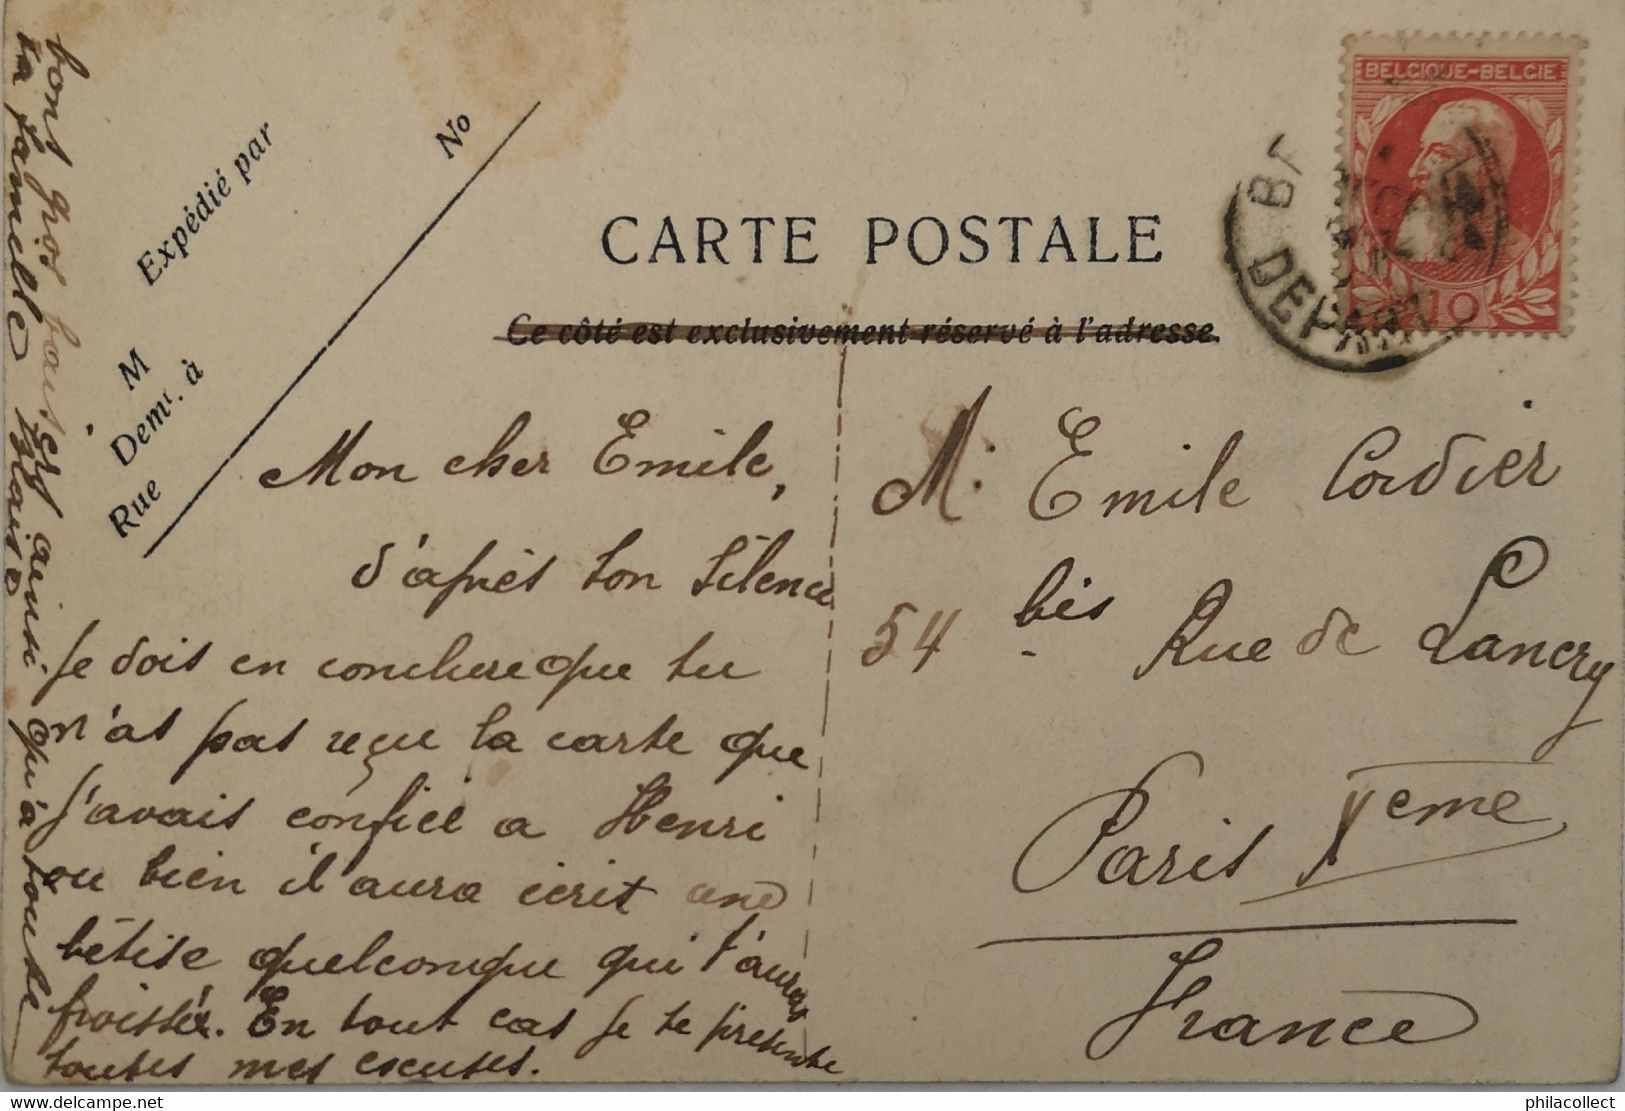 CARTE POSTALE
Ce côté est exclusivement réservé à l'adresse.
Expédié par
No
M
Demt. à
Rue
BELGIQUE-BELGIE
10
DEPART
Mon cher Emile,
d'après ton silence
je dois en conclure que tu
n'as pas reçu la carte que
j'avais confiée a Henri
ou bien il aura écrit une
bêtise quelconque qui t'aura
froissée. En tout cas je te présente
toutes mes escuses.
bons gros baisers ainsi qu'à toute
ta famelle
M. Emile Cordier
54 bis Rue de Lancry
Paris Xeme
France
delcampe.net
philacollect